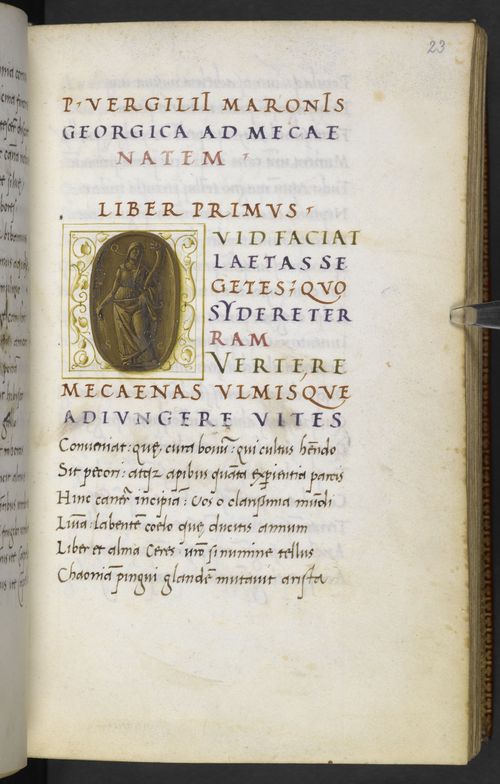 23
P·VERGILII MARONIS
GEORGICA AD MECAE
NATEM
LIBER PRIMVS
QVID FACIAT
LAETAS SE
GETES: QVO
SYDERE TER
RAM
VERTERE
MECAENAS VLMISQVE
ADIVNGERE VITES
Conveniat: quę, cura boūm: qui cultus hēndo
Sit pecori: atqz apibus quāta expientia parcis
Hinc caner̄ incipiā: Vos o clarissima mūdi
Luīa: labentē coelo quę, ducitis annum
Liber et alma Ceres vr̄o si numine tellus
Chaoniā pingui glandē mutavit arista